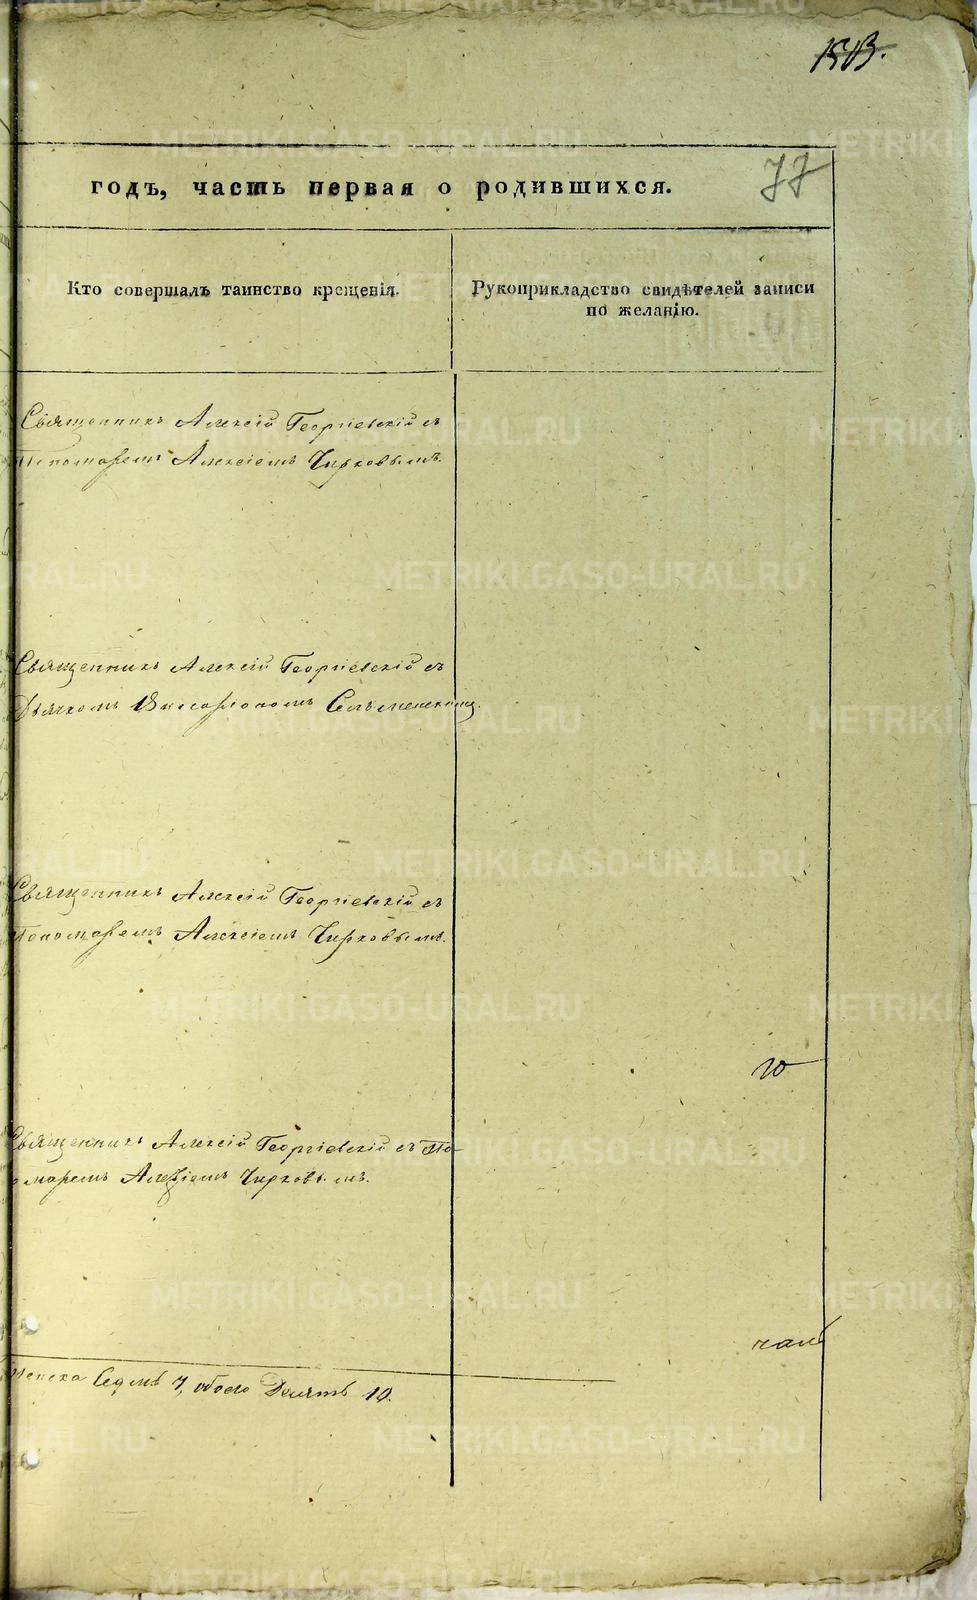 годъ, часть первая о родившихся.
77
Кто совершалъ таинство крещенія.
Рукоприкладство свидѣтелей записи
по желанію.
Священникъ Алексій Георгіевскій съ
Пономаремъ Алексіемъ Чирковымъ.
Священникъ Алексій Георгіевскій съ
Дьячкомъ
Священникъ Алексій Георгіевскій съ
Пономаремъ Алексіемъ Чирковымъ.
10
Священникъ Алексій Георгіевскій съ По-
номаремъ Алексіемъ Чирковымъ.
женска Седмь 7, обоего Десять 10.
METRIKI.GASO-URAL.RU